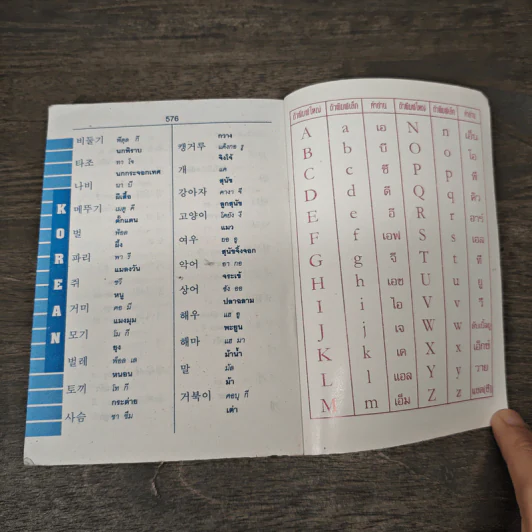 576
KOREAN
비둘기 พีดุล กี
นกพิราบ
타조 ทา โจ
นกกระจอกเทศ
나비 นา บี
ผีเสื้อ
메뚜기 เมตู คี
ตั๊กแตน
벌 พ้อล
ผึ้ง
파리 พา รี
แมลงวัน
쥐 ชวี
หนู
거미 คอ มี
แมงมุม
모기 โม กี
ยุง
벌레 พ้อล เล
หนอน
토끼 โท กี
กระต่าย
사슴 ซา ซึม
กวาง
캥거루 แค็งกอ รู
จิงโจ้
개 แค
สุนัข
강아지 คางา จี
ลูกสุนัข
고양이 โคยัง อี
แมว
여우 ยอ อู
สุนัขจิ้งจอก
악어 อา กอ
จระเข้
상어 ซัง ออ
ปลาฉลาม
해우 แฮ อู
พะยูน
해마 แฮ มา
ม้าน้ำ
말 มัล
ม้า
거북이 คอบุ กี
เต่า
ตัวพิมพ์ใหญ่ ตัวพิมพ์เล็ก คำอ่าน ตัวพิมพ์ใหญ่ ตัวพิมพ์เล็ก คำอ่าน
A a เอ N n เอ็น
B b บี O o โอ
C c ซี P p พี
D d ดี Q q คิว
E e อี R r อาร์
F f เอฟ S s เอส
G g จี T t ที
H h เอช U u ยู
I i ไอ V v วี
J j เจ W w ดับเบิ้ลยู
K k เค X x เอ็กซ์
L l แอล Y y วาย
M m เอ็ม Z z